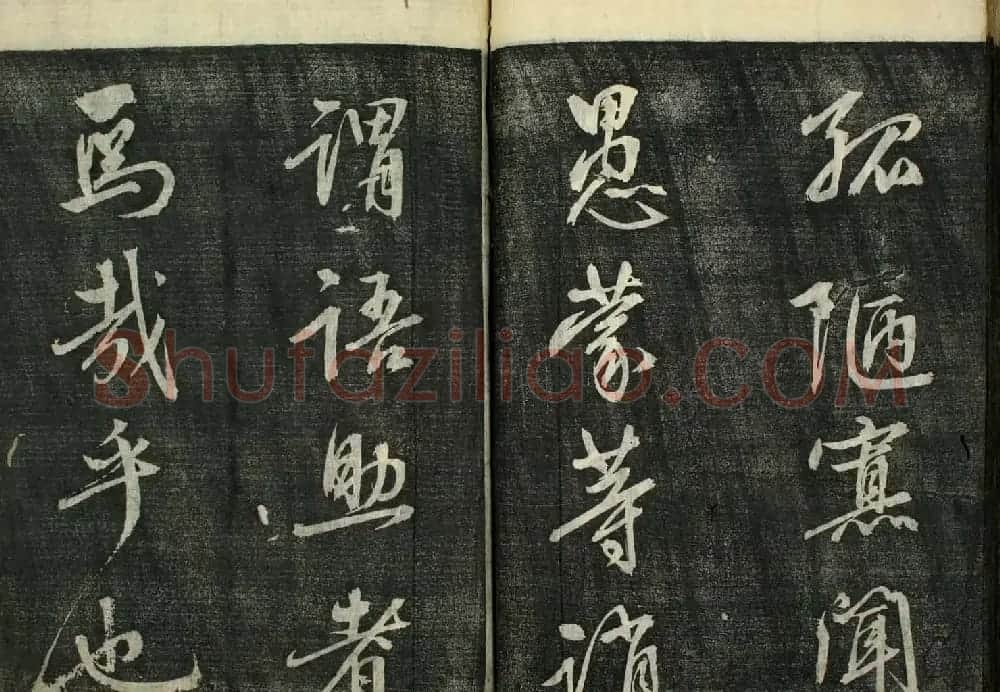 孤陋寡聞
愚蒙等誚
謂語助者
焉哉乎也
Shufaziliao.COM